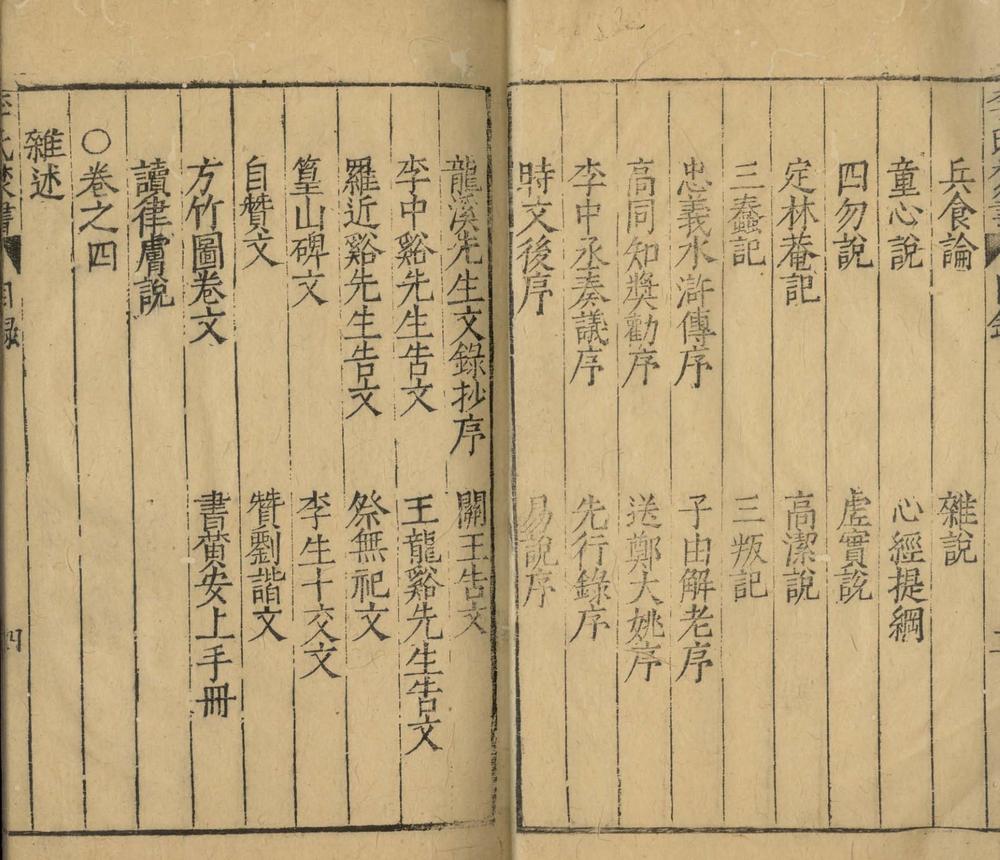 兵食論 雜說
童心說 心經提綱
四勿說 虛實說
定林菴記 高潔說
三蠢記 三叛記
忠義水滸傳序 子由解老序
高同知獎勸序 送鄭大姚序
李中丞奏議序 先行錄序
時文後序 易說序
龍溪先生文錄抄序 關王告文
李中谿先生告文 王龍谿先生告文
羅近谿先生告文 祭無祀文
篁山碑文 李生十交文
自贊文 贊劉諧文
方竹圖卷文 書黄安上手冊
讀律膚說
○卷之四
雜述
李氏焚書 目錄 四